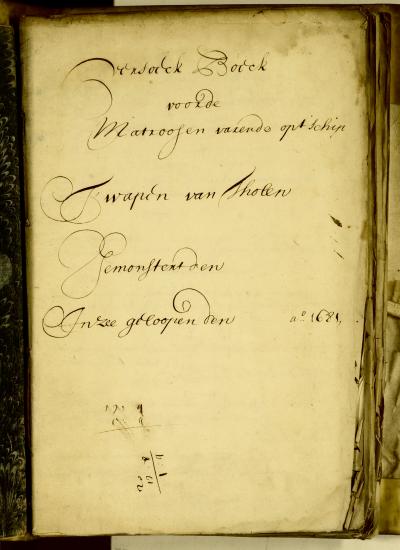 Versoeck Boeck
voorde
Matroosen varende opt schip
T wapen van Tholen
Gemonstert den
In zee geloopen den a:o 1681,